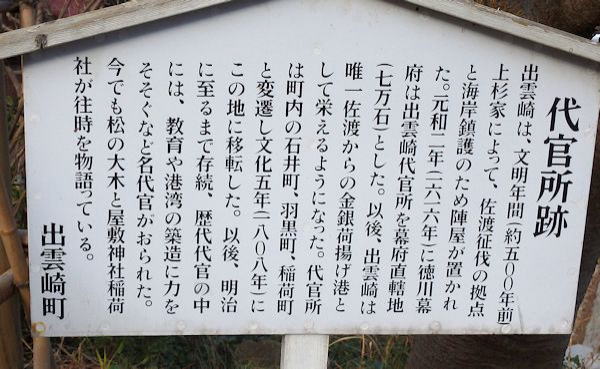 代官所跡
出雲崎は、文明年間(約五〇〇年前)
上杉家によって、佐渡征伐の拠点
と海岸鎮護のため陣屋が置かれ
た。元和二年(一六一六年)に徳川幕
府は出雲崎代官所を幕府直轄地
(七万石)とした。以後、出雲崎は
唯一佐渡からの金銀荷揚げ港と
して栄えるようになった。代官所
は町内の石井町、羽黒町、稲荷町
と変遷し文化五年(一八〇八年)に
この地に移転した。以後、明治
に至るまで存続、歴代代官の中
には、教育や港湾の築造に力を
そそぐなど名代官がおられた。
今でも松の大木と屋敷神社稲荷
社が往時を物語っている。
出雲崎町